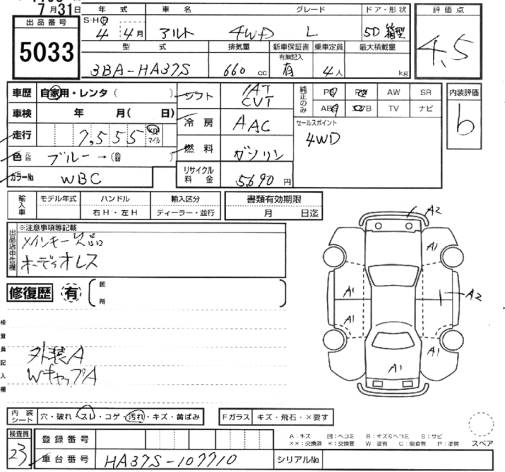 7月31日
年 式 車 名 グレード ドア・形状 評価点
出品番号
5033
S・H・R
4年 4月 アルト 4WD L 5D 箱型
4.5
型 式 排気量 新車保証書 乗車定員 最大積載量
有無記入
3BA-HA37S 660cc 有 4人 kg
車歴 自家用・レンタ( )
シフト IAT CVT
純正のみ PS PW AW SR
ABS エアB TV ナビ
内装評価
b
車検 年 月( 日)
冷房 AAC
セールスポイント
4WD
走行 7,555 km マイル
燃料 ガソリン
色 ブルー→( )
カラーNo WBC
リサイクル料金 5690円
輸入車 モデル年式 ハンドル 輸入区分
右H・左H ディーラー・並行
書類有効期限
月 日迄
出品店申告欄
※注意事項等記載
メインキー欠品
オーディオレス
修復歴 有
箇所
検査員記入欄
外装A
WキャップA
A2
A1 A1
A1 A2
A1
A1 A1
内装シート 穴・破れ・スレ・コゲ・汚れ・キズ・黄ばみ
Fガラス キズ・飛石・×要す
A:キズ 凹:ヘコミ B:キズ&ヘコミ S:サビ
スペア
検査員
23
登録番号
車台番号 HA37S-107710
シリアルNo